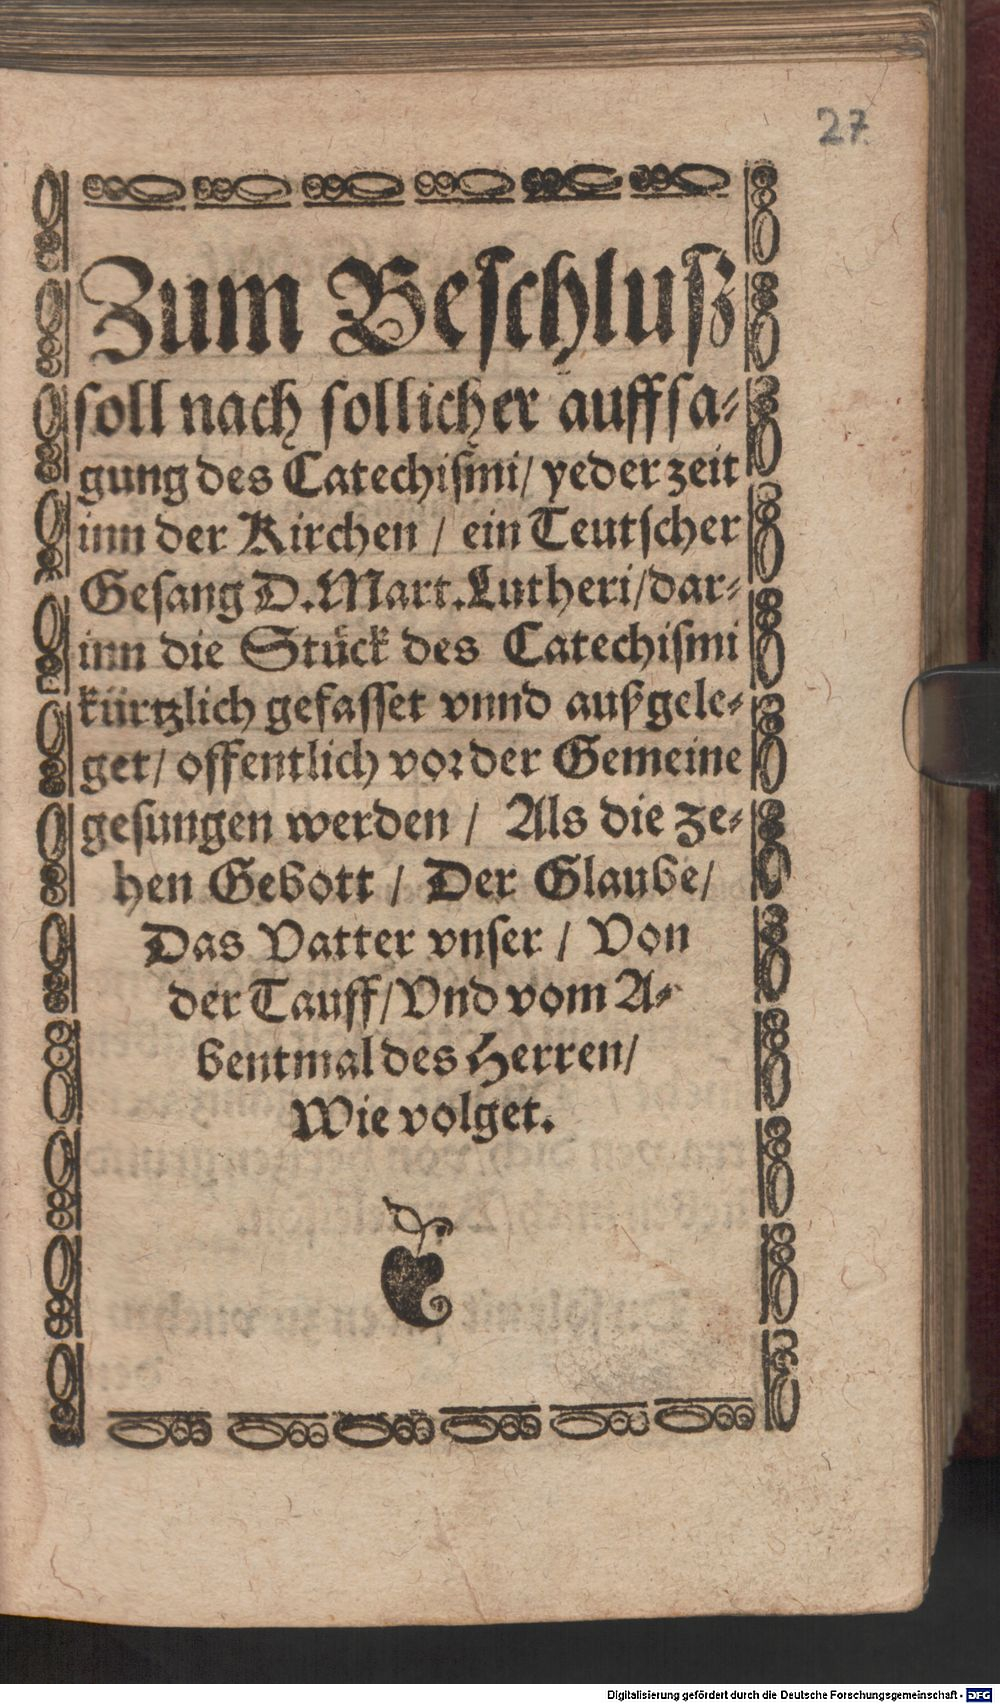 27
Zum Beschluß
soll nach sollicher auffsa-
gung des Catechismi/ yeder zeit
inn der Kirchen / ein Teutscher
Gesang D. Mart. Lutheri/ dar-
inn die Stück des Catechismi
kürtzlich gefasset vnnd außgele-
get/ offentlich vor der Gemeine
gesungen werden / Als die ze-
hen Gebott / Der Glaube/
Das Vatter vnser / Von
der Tauff/ Vnd vom A-
bentmal des Herren/
Wie volget.
Digitalisierung gefördert durch die Deutsche Forschungsgemeinschaft - DFG